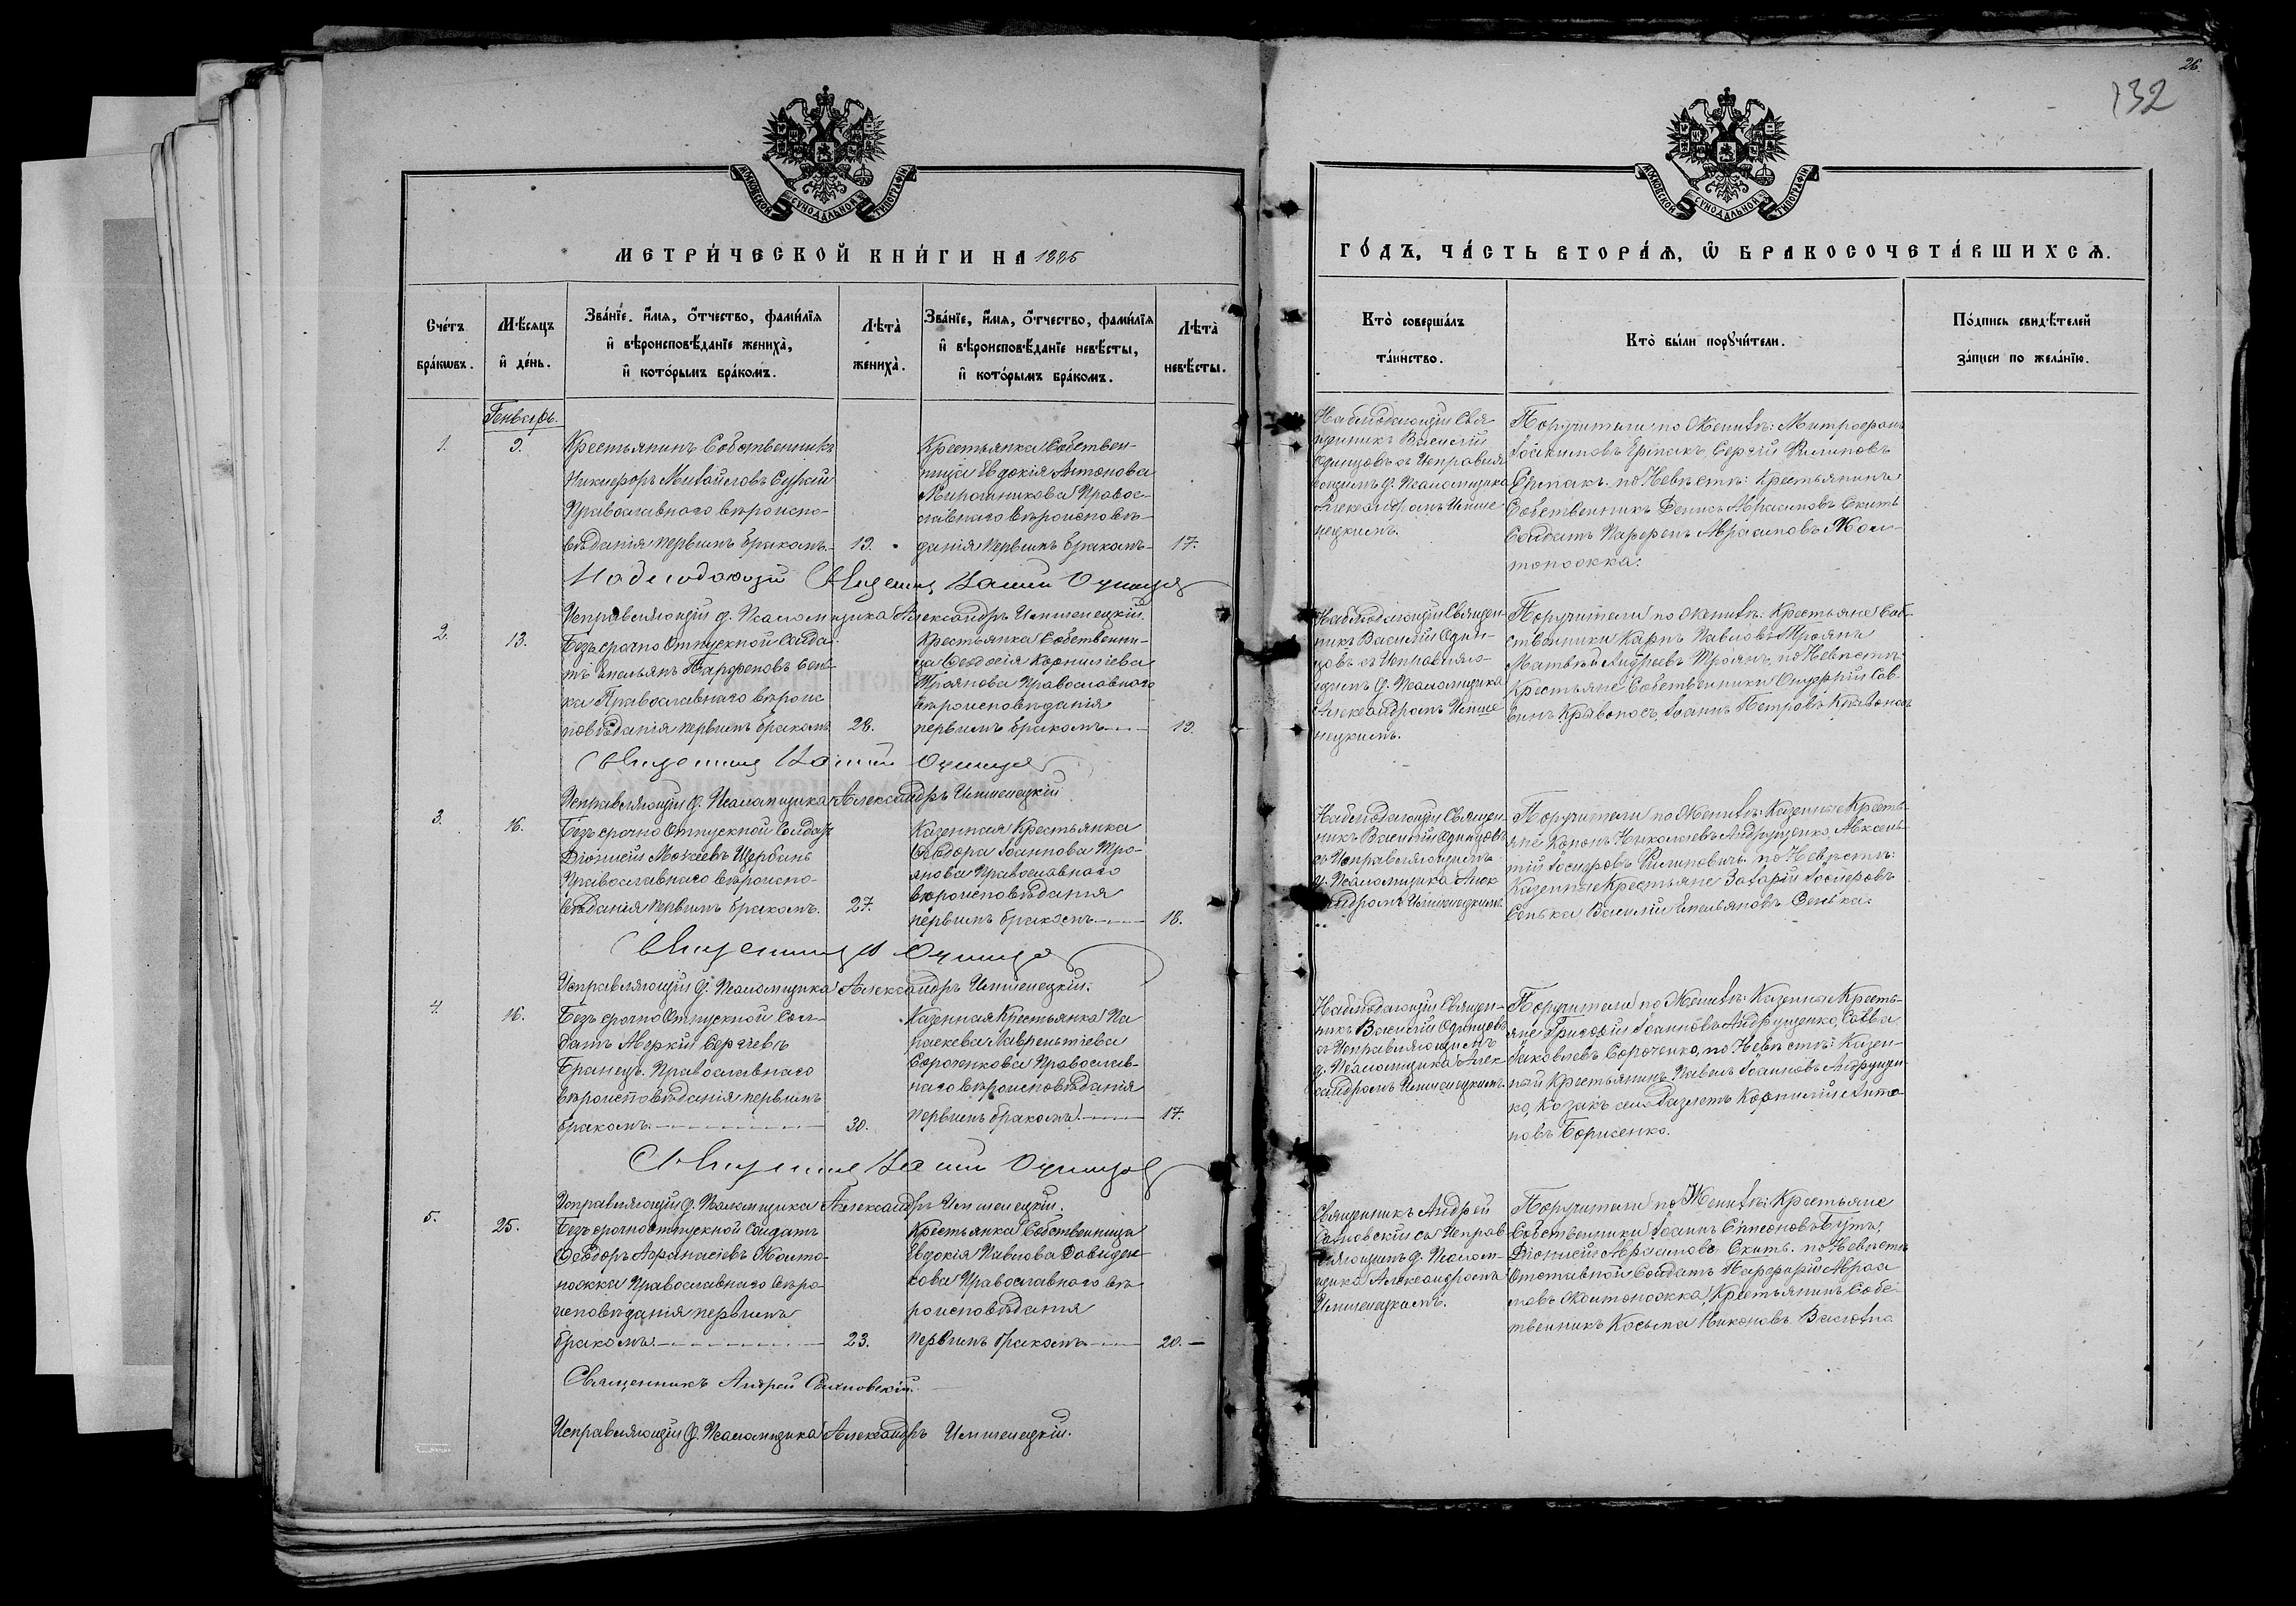 26.
132
МОСКОВСКОЙ СѴНОДАЛЬНОЙ ТИПОГРАФІИ
МЕТРИ́ЧЕСКОЙ КНИ́ГИ НА 1885
Сче́тъ бра́кѡвъ.
Мѣ́сяцъ и҆ де́нь.
Зва́нїе, и҆́мѧ, ѻ҆́тчество, фами́лїѧ
и҆ вѣроисповѣ́данїе жениха̀,
и҆ кото́рымъ бра́комъ.
Лѣта̀ жениха̀.
Зва́нїе, и҆́мѧ, ѻ҆́тчество, фами́лїѧ
и҆ вѣроисповѣ́данїе невѣ́сты,
и҆ кото́рымъ бра́комъ.
Лѣта̀ невѣ́сты.
Генварь.
1.
9.
Крестьянинъ Собственникъ
Никифоръ Михайловъ
Православнаго вѣроиспо-
вѣданія первымъ бракомъ.
19.
Крестьянка Собствен-
ница Евдокія Антонова
Мирошникова Правос-
лавнаго вѣроисповѣ-
данія первымъ бракомъ
17.
Наблюдающій Священник Василій Одинцов
Исправляющій д. Псаломщика Александръ
2.
13.
Безъсрочно Отпускной Солда-
тъ Емельянъ Парфеновъ Сень-
ка Православнаго вѣроис
повѣданія первымъ бракомъ
28.
Крестьянка Собственни-
ца Ѳеодосія Корниліева
Троянова Православнаго
вѣроисповѣданія
первымъ бракомъ
19.
Священник Василій Одинцов
Исправляющій д. Псаломщика Александръ
3.
16.
Безъсрочно Отпускной Солдатъ
Діонисій Моисеевъ Щербань
Православнаго вѣроиспо-
вѣданія первымъ бракомъ.
27.
Казенная Крестьянка
Ѳеодора Іоаннова Тро-
янова Православнаго
вѣроисповѣданія
первымъ бракомъ
18.
Священник В Одинцов
Исправляющій д. Псаломщика Александръ
4.
16.
Безъсрочно Отпускной Сол-
датъ Аверкій Сергіевъ
Бранецъ Православнаго
вѣроисповѣданія первымъ
бракомъ.
30.
Казенная Крестьянка Па
раскева Лаврентіева
Сороченкова Православ-
наго вѣроисповѣданія
первымъ бракомъ
17.
Священник Василій Одинцов
Исправляющій д. Псаломщика Александръ
5.
25.
Безъсрочноотпускной Солдатъ
Ѳеодоръ Аѳанасіевъ Жолто-
ножка Православнаго вѣро-
исповѣданія первымъ
бракомъ.
23.
Крестьянка Собственница
Евдокія Павлова Давиден-
кова Православнаго вѣ-
роисповѣданія
первымъ бракомъ
20.
Священникъ Андрей
Исправляющій д. Псаломщика Александръ
МОСКОВСКОЙ СѴНОДАЛЬНОЙ ТИПОГРАФІИ
ГО́ДЪ, ЧА́СТЬ ВТОРА́Ѧ, Ѡ҆ БРАКОСОЧЕТА́ВШИХСѦ.
Кто̀ соверша́лъ
та́инство.
Кто̀ бы́ли порꙋчи́тели.
По́дпись свидѣ́телей
за́писи по жела́нїю.
Наблюдающій Свя-
щенникъ Василій
Одинцовъ съ Исправля
ющимъ д. Псаломщика
Александромъ
Поручители по Женихѣ: Митрофанъ
Іоакимовъ Ермакъ, Сергій Филиповъ
Ермакъ. по Невѣстѣ: Крестьянинъ
Собственникъ Денисъ Абрамовъ Скитъ
Солдатъ Парфенъ Абрамовъ Жол-
тоножка.
Наблюдающій Священ-
никъ Василій Один-
цовъ съ Исправляю-
щимъ д. Псаломщика
Александромъ
Поручители по Женихѣ: Крестьяне Соб-
ственники Карпъ Павловъ Троянъ
Матвѣй Андреевъ Троянъ, по Невѣстѣ:
Крестьяне Собственники Онуфрій Сав-
винъ Кривоносъ, Іоаннъ Петровъ Кривоносъ
Наблюдающій Священ-
никъ Василій Одинцовъ
съ Исправляющимъ
д. Псаломщика Алек
сандромъ
Поручители по Женихѣ: Казенные Кресть-
яне Кононъ Николаевъ Андрущенко, Авксен-
тій Іосифовъ Филиповичъ. по Невѣстѣ:
Казенные Крестьяне Захарій Іосифовъ
Сенька Василій Емельяновъ Сенька.
Наблюдающій Священ-
никъ Василій Одинцовъ
съ Исправляющимъ
д. Псаломщика Алек-
сандромъ
Поручители по Женихѣ: Казенные Кресть-
яне Григорій Іоанновъ Андрущенко, Савва
Іаковлевъ Сороченко, по Невѣстѣ: Казен-
ный Крестьянинъ Павелъ Іоанновъ Андрущен-
ко, Козакъ Корнилій Анто-
новъ Борисенко.
Священникъ Андрей
съ Исправ
ляющимъ д. Псалом-
щика Александромъ
Поручители по Женихѣ: Крестьяне
Собственники Іоаннъ Симеоновъ Бутъ,
Діонисій Абрамовъ Скитъ. по Невѣстѣ
Отставной Солдатъ Абра
мовъ Жолтоножка, Крестьянинъ Собс-
твенникъ Косьма Никоновъ